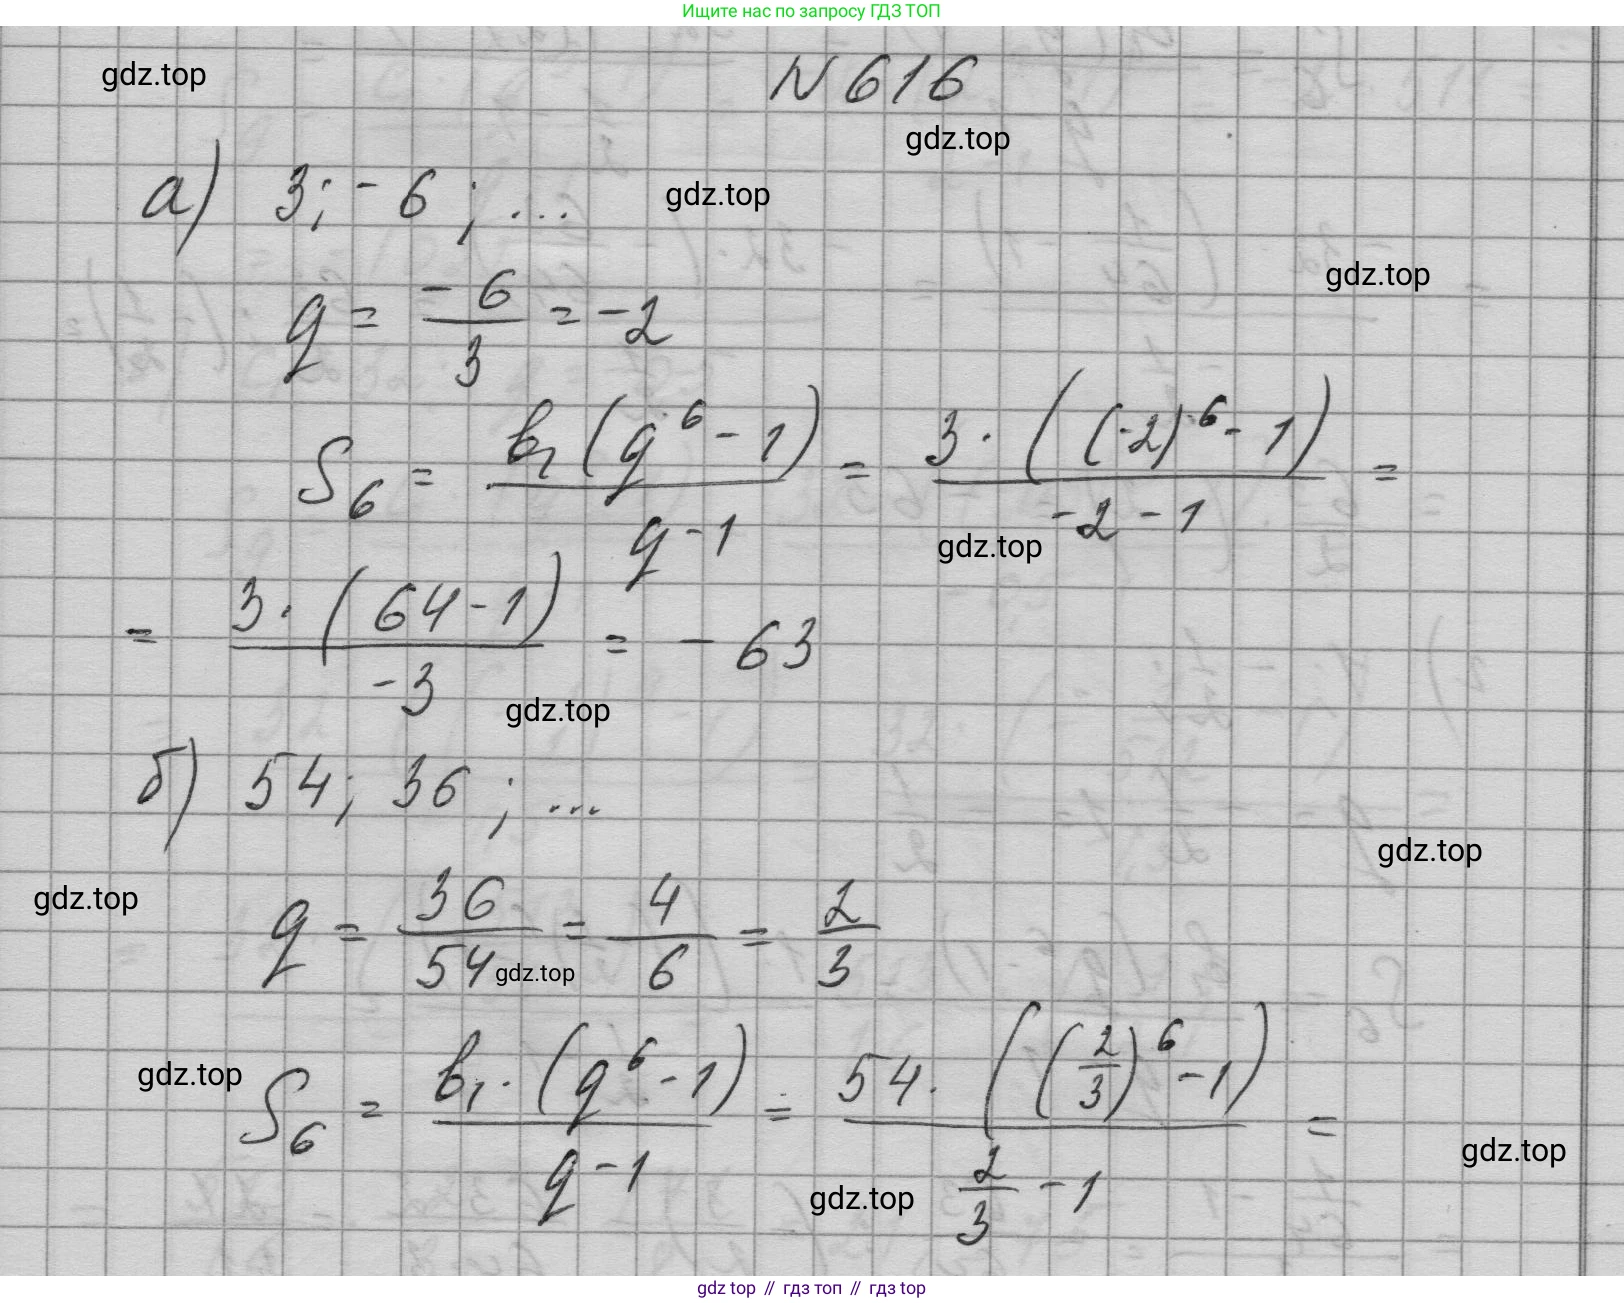 Ищите нас по запросу ГДЗ ТОП
gdz.top
N 616
gdz.top
а) 3; -6; ...
gdz.top
gdz.top
q = -6/3 = -2
S₆ = b₁(q⁶ - 1)/(q - 1) = 3·((-2)⁶ - 1)/(-2 - 1) =
gdz.top
= 3·(64 - 1)/-3 = -63
gdz.top
б) 54; 36; ...
gdz.top
gdz.top
q = 36/54 = 4/6 = 2/3
gdz.top
gdz.top
S₆ = b₁·(q⁶ - 1)/(q - 1) = 54·((2/3)⁶ - 1)/(2/3 - 1) =
gdz.top
gdz.top
gdz top // гдз топ // гдз top